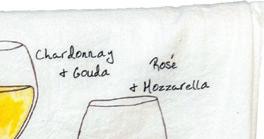 Chardonnay
+ Gouda
Rosé
+ Mozzarella